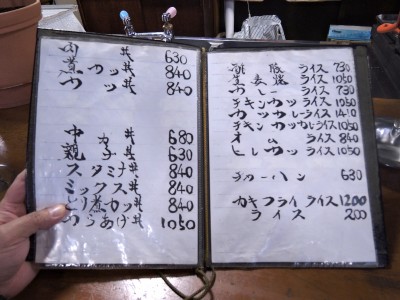 肉丼 630
煮カツ丼 840
カツ丼 840
中丼 680
親子丼 630
スタミナ 840
ミックス 840
840
からあげ丼 1050
ライス 730
生姜焼ライス 1050
カレーライス 730
チキンカツライス 1050
カツカレーライス 1410
チキンカツカレーライス
オムライス
ヒレカツライス 1050
チャーハン 630
カキフライライス 1200
ライス 200